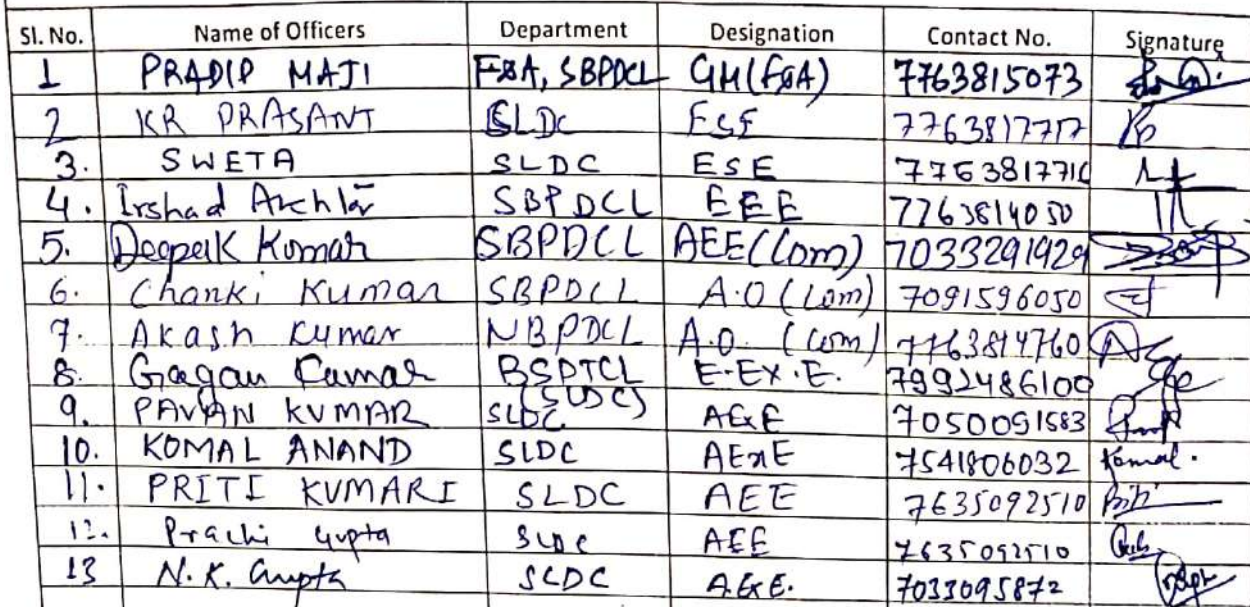 Sl. No. Name of Officers Department Designation Contact No. Signature
1 PRADIP MAJI F&A, SBPDCL GM(F&A) 7763815073
2 KR PRASANT SLDC ESE 7763817717
3. SWETA SLDC ESE 7763817710
4. Irshad SBPDCL EEE 7763814050
5. Deepak Kumar SBPDCL AEE(Com) 7033291929
6. Chanki Kumar SBPDCL A.O (Com) 7091596050
7. Akash Kumar NBPDCL A.O. (Com) 7763814760
8. Gagan Kumar BSPTCL (SLDC) E.Ex.E. 7992486100
9. PAVAN KUMAR SLDC AExE 7050051583
10. KOMAL ANAND SLDC AExE 7541806032 Komal.
11. PRITI KUMARI SLDC AEE 7635092510 Priti
12. Prachi Gupta SLDC AEE 7635092510
13 N.K. Gupta SLDC A.Ex.E. 7033095872